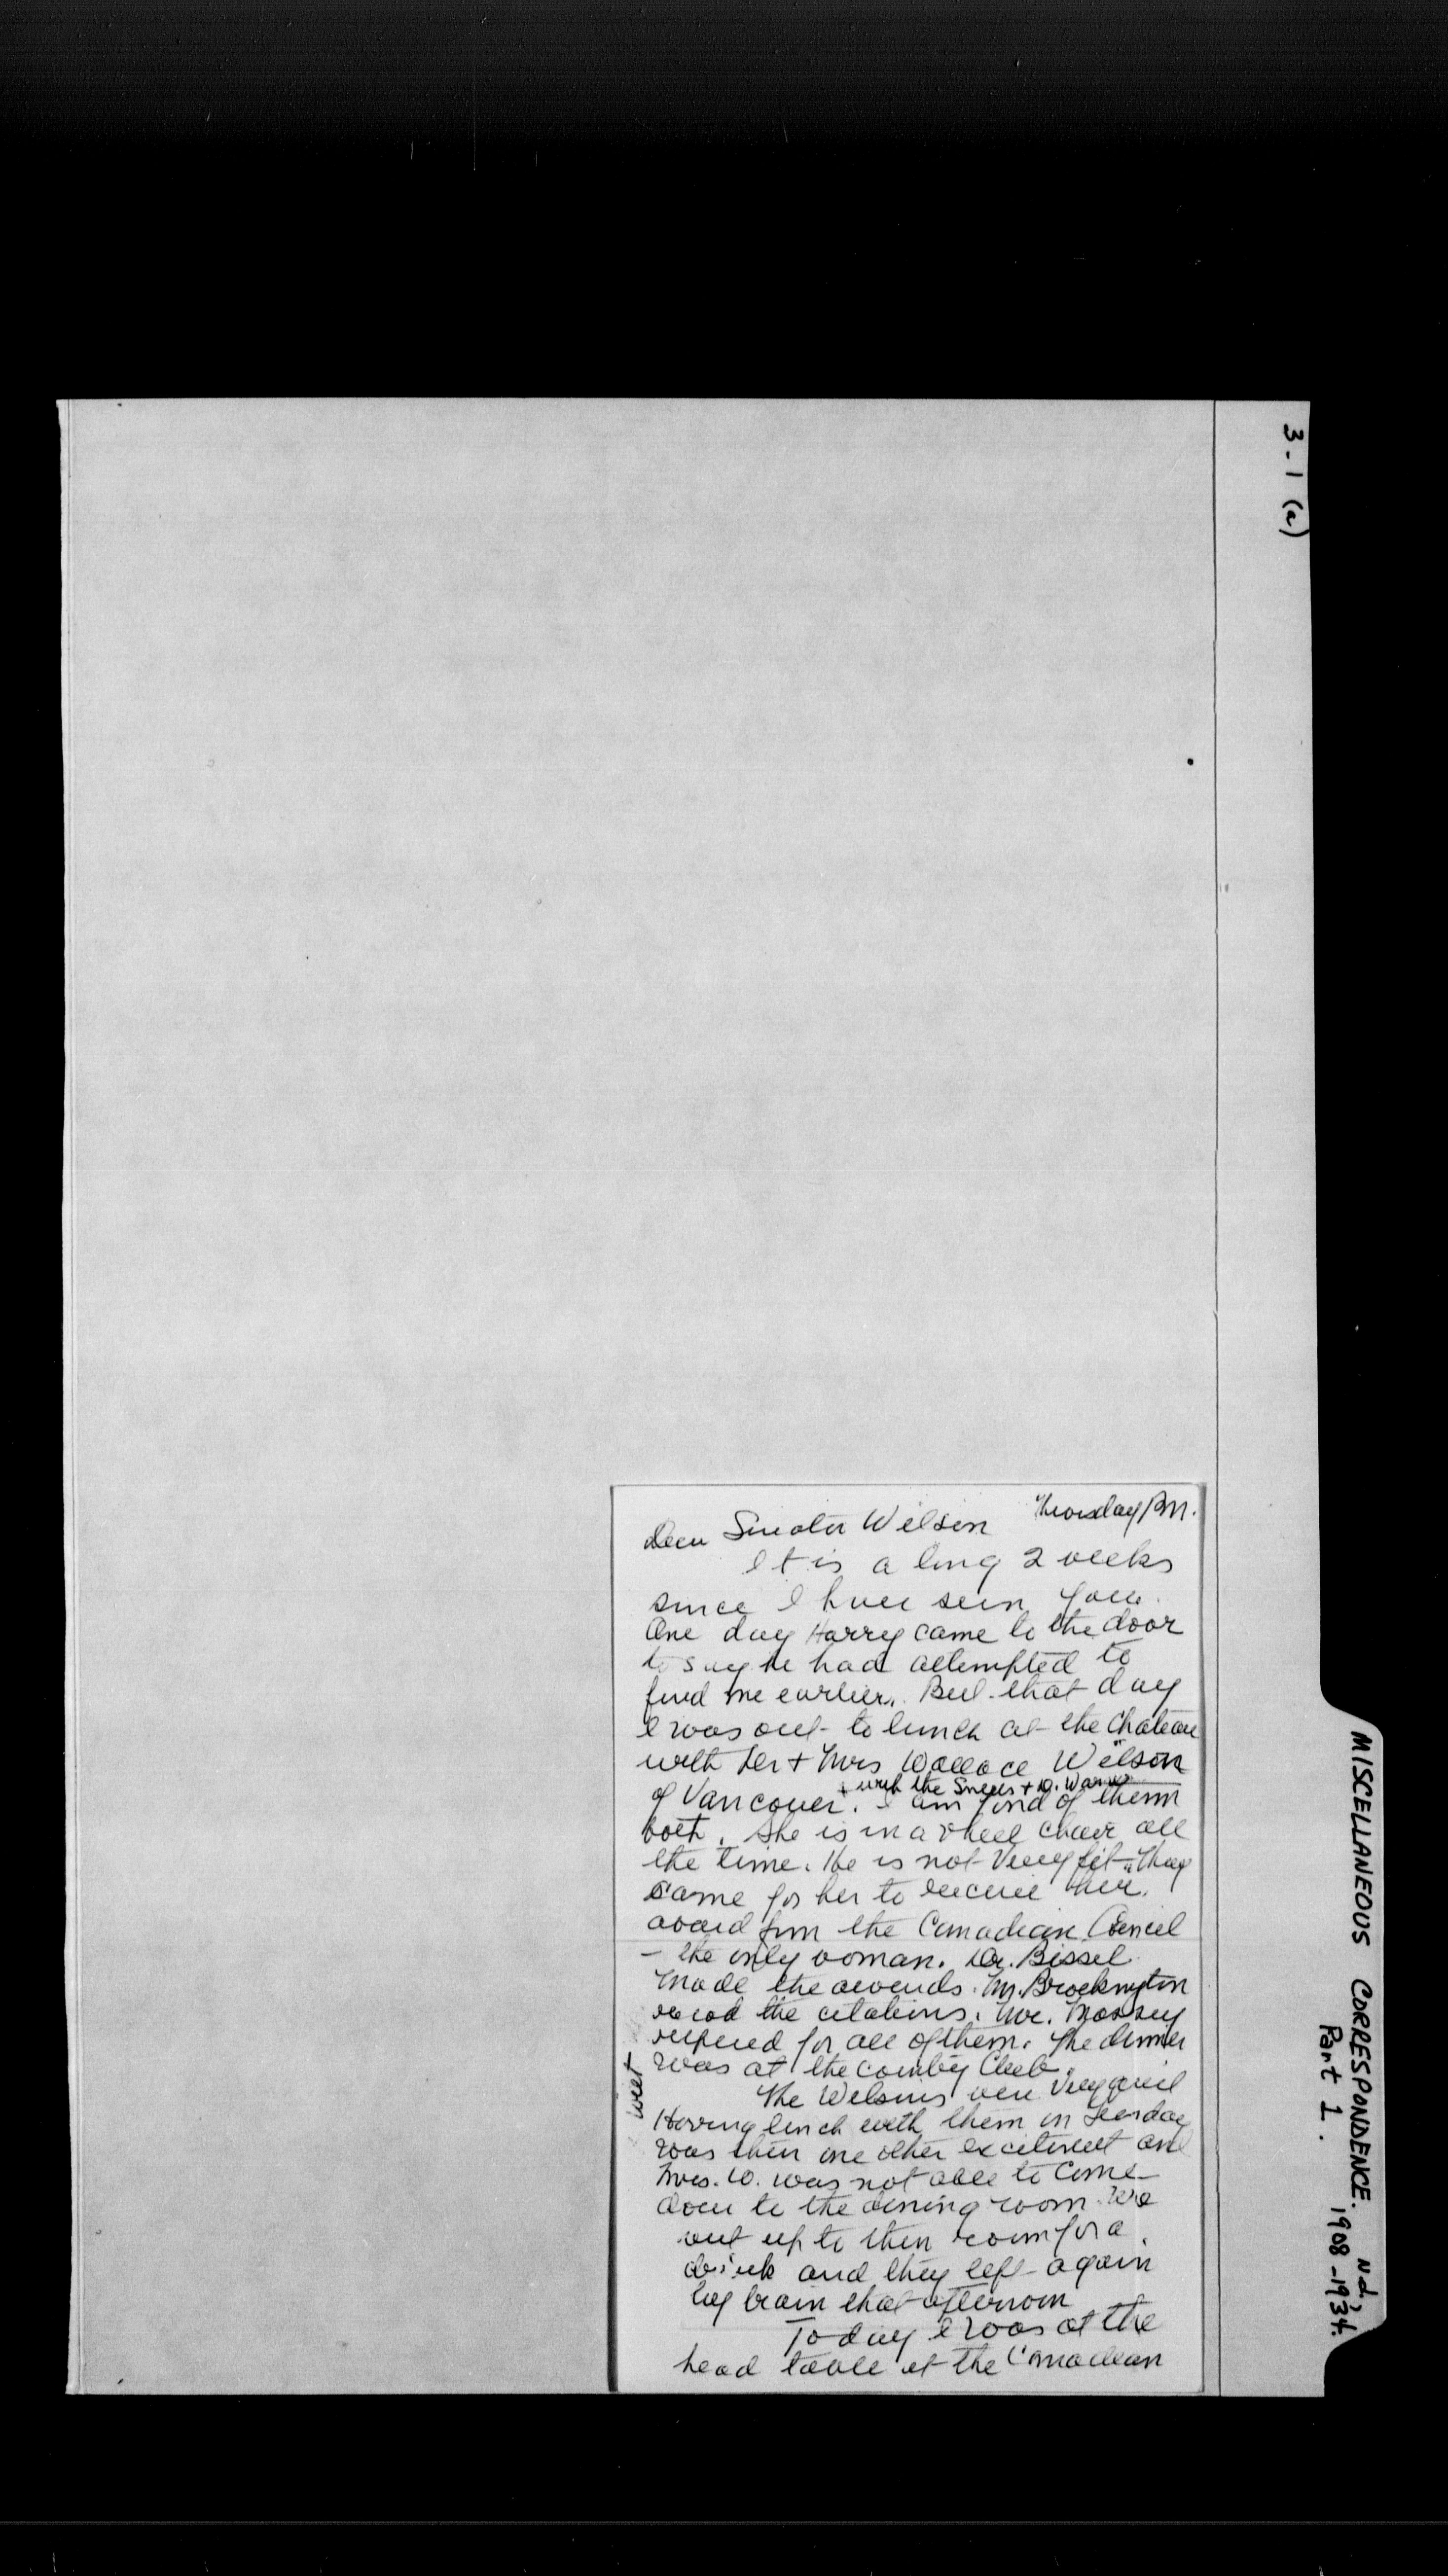 3-1 (a)
MISCELLANEOUS CORRESPONDENCE. N.d., 1908-1934.
Part 1.
Thursday P.M.
Dear Senator Wilson
It is a long 2 weeks
since I have seen you.
One day Harry came to the door
to say he had attempted to
find me earlier. But that day
I was out to lunch at the Chateau
with Dr + Mrs Wallace Wilson
+ with the + D. Warner
of Vancouver. I am fond of them
both. She is in a wheel chair all
the time. He is not very fit. They
came for her to receive her
award from the Canadian Council
- the only woman. Dr. Bissel
made the awards. Mr. Brockington
read the citations. Mr. Massey
replied for all of them. The dinner
was at the country Club.
The Wilsons were very
went
Having lunch with them on Tuesday
was then one other excitement and
Mrs. W. was not able to come
down to the dining room. We
went up to their room for a
drink and they left again
by train that afternoon
Today I was at the
head table at the Canadian